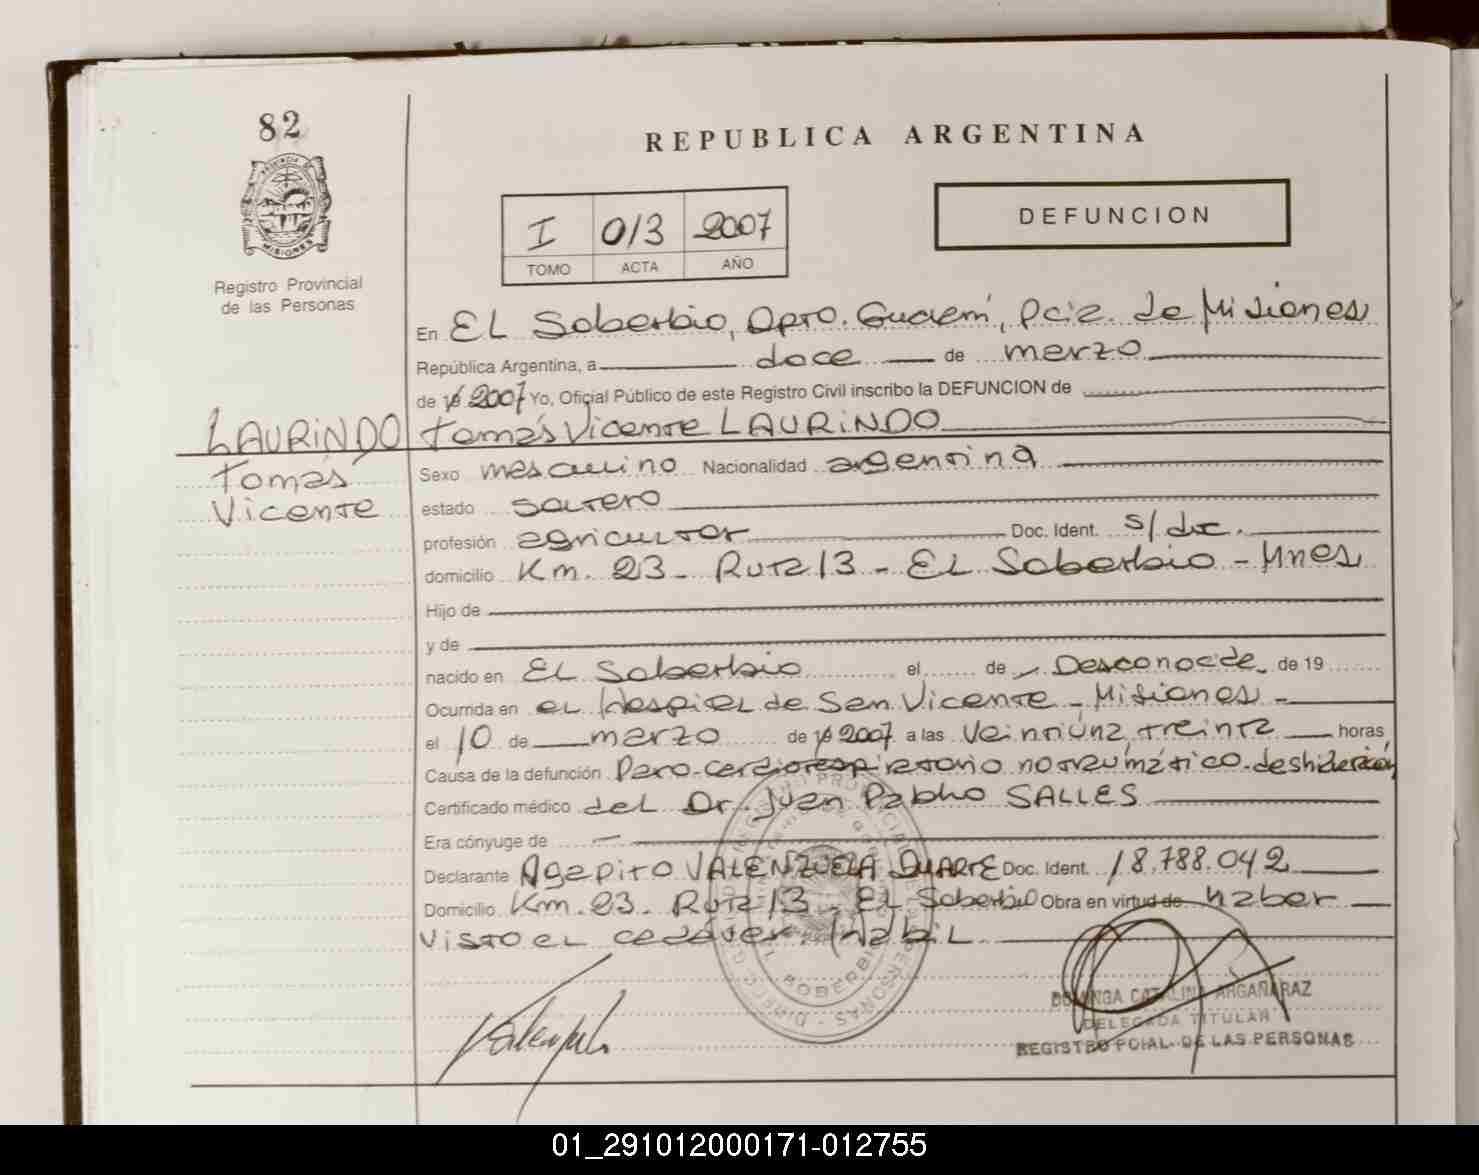 82
REPUBLICA ARGENTINA
MISIONES
Registro Provincial
de las Personas
I 013 2007
TOMO ACTA AÑO
DEFUNCION
En El Soberbio, Dpto. Guaraní, Pcia. de Misiones
República Argentina, a doce de marzo
de 2007 Yo, Oficial Público de este Registro Civil inscribo la DEFUNCION de
LAURINDO Tomás Vicente LAURINDO
Tomás
Vicente
Sexo masculino Nacionalidad argentina
estado soltero
profesión agricultor Doc. Ident. s/doc.
domicilio Km. 23 - Ruta 13 - El Soberbio - Mnes
Hijo de
y de
nacido en El Soberbio el de Desconoce de 19
Ocurrida en el Hospital de San Vicente - Misiones -
el 10 de marzo de 2007 a las veintiuna, treinta horas
Causa de la defunción Paro cardiorespiratorio no traumático - deshidratación
Certificado médico del Dr. Juan Pablo SALLES
Era cónyuge de
Declarante Agapito VALENZUELA DUARTE Doc. Ident. 18.788.042
Domicilio Km. 23 - Ruta 13 - El Soberbio Obra en virtud de haber
visto el cadáver.
CATALINA ARGAÑARAZ
DELEGADA TITULAR
REGISTRO PCIAL. DE LAS PERSONAS
01_291012000171-012755